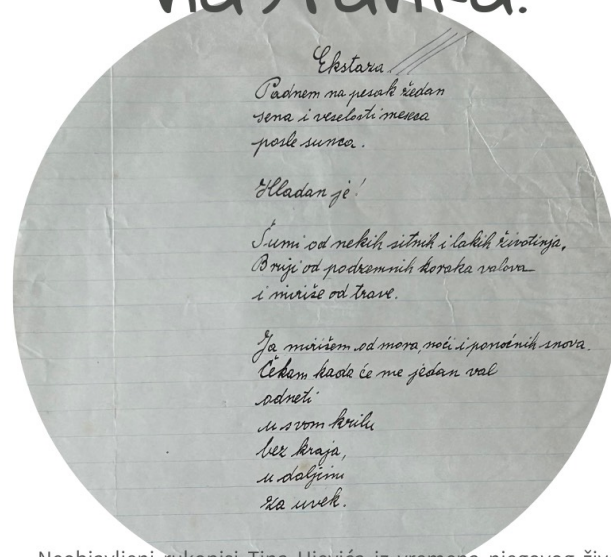 na Avanka.
Ekstaza
Padnem na pesak žedan
sena i veselosti meseca
posle sunca.
Hladan je!
Šumi od nekih sitnih i lakih životinja,
Bruji od podzemnih koraka valova
i miriše od trave.
Ja mirišem od mora, noći i ponoćnih snova.
Čekam kada će me jedan val
odneti
u svom krilu
bez kraja,
u daljini
za uvek.
Neobjavljeni rukopisi Tina Ujevića iz vremena njegovog